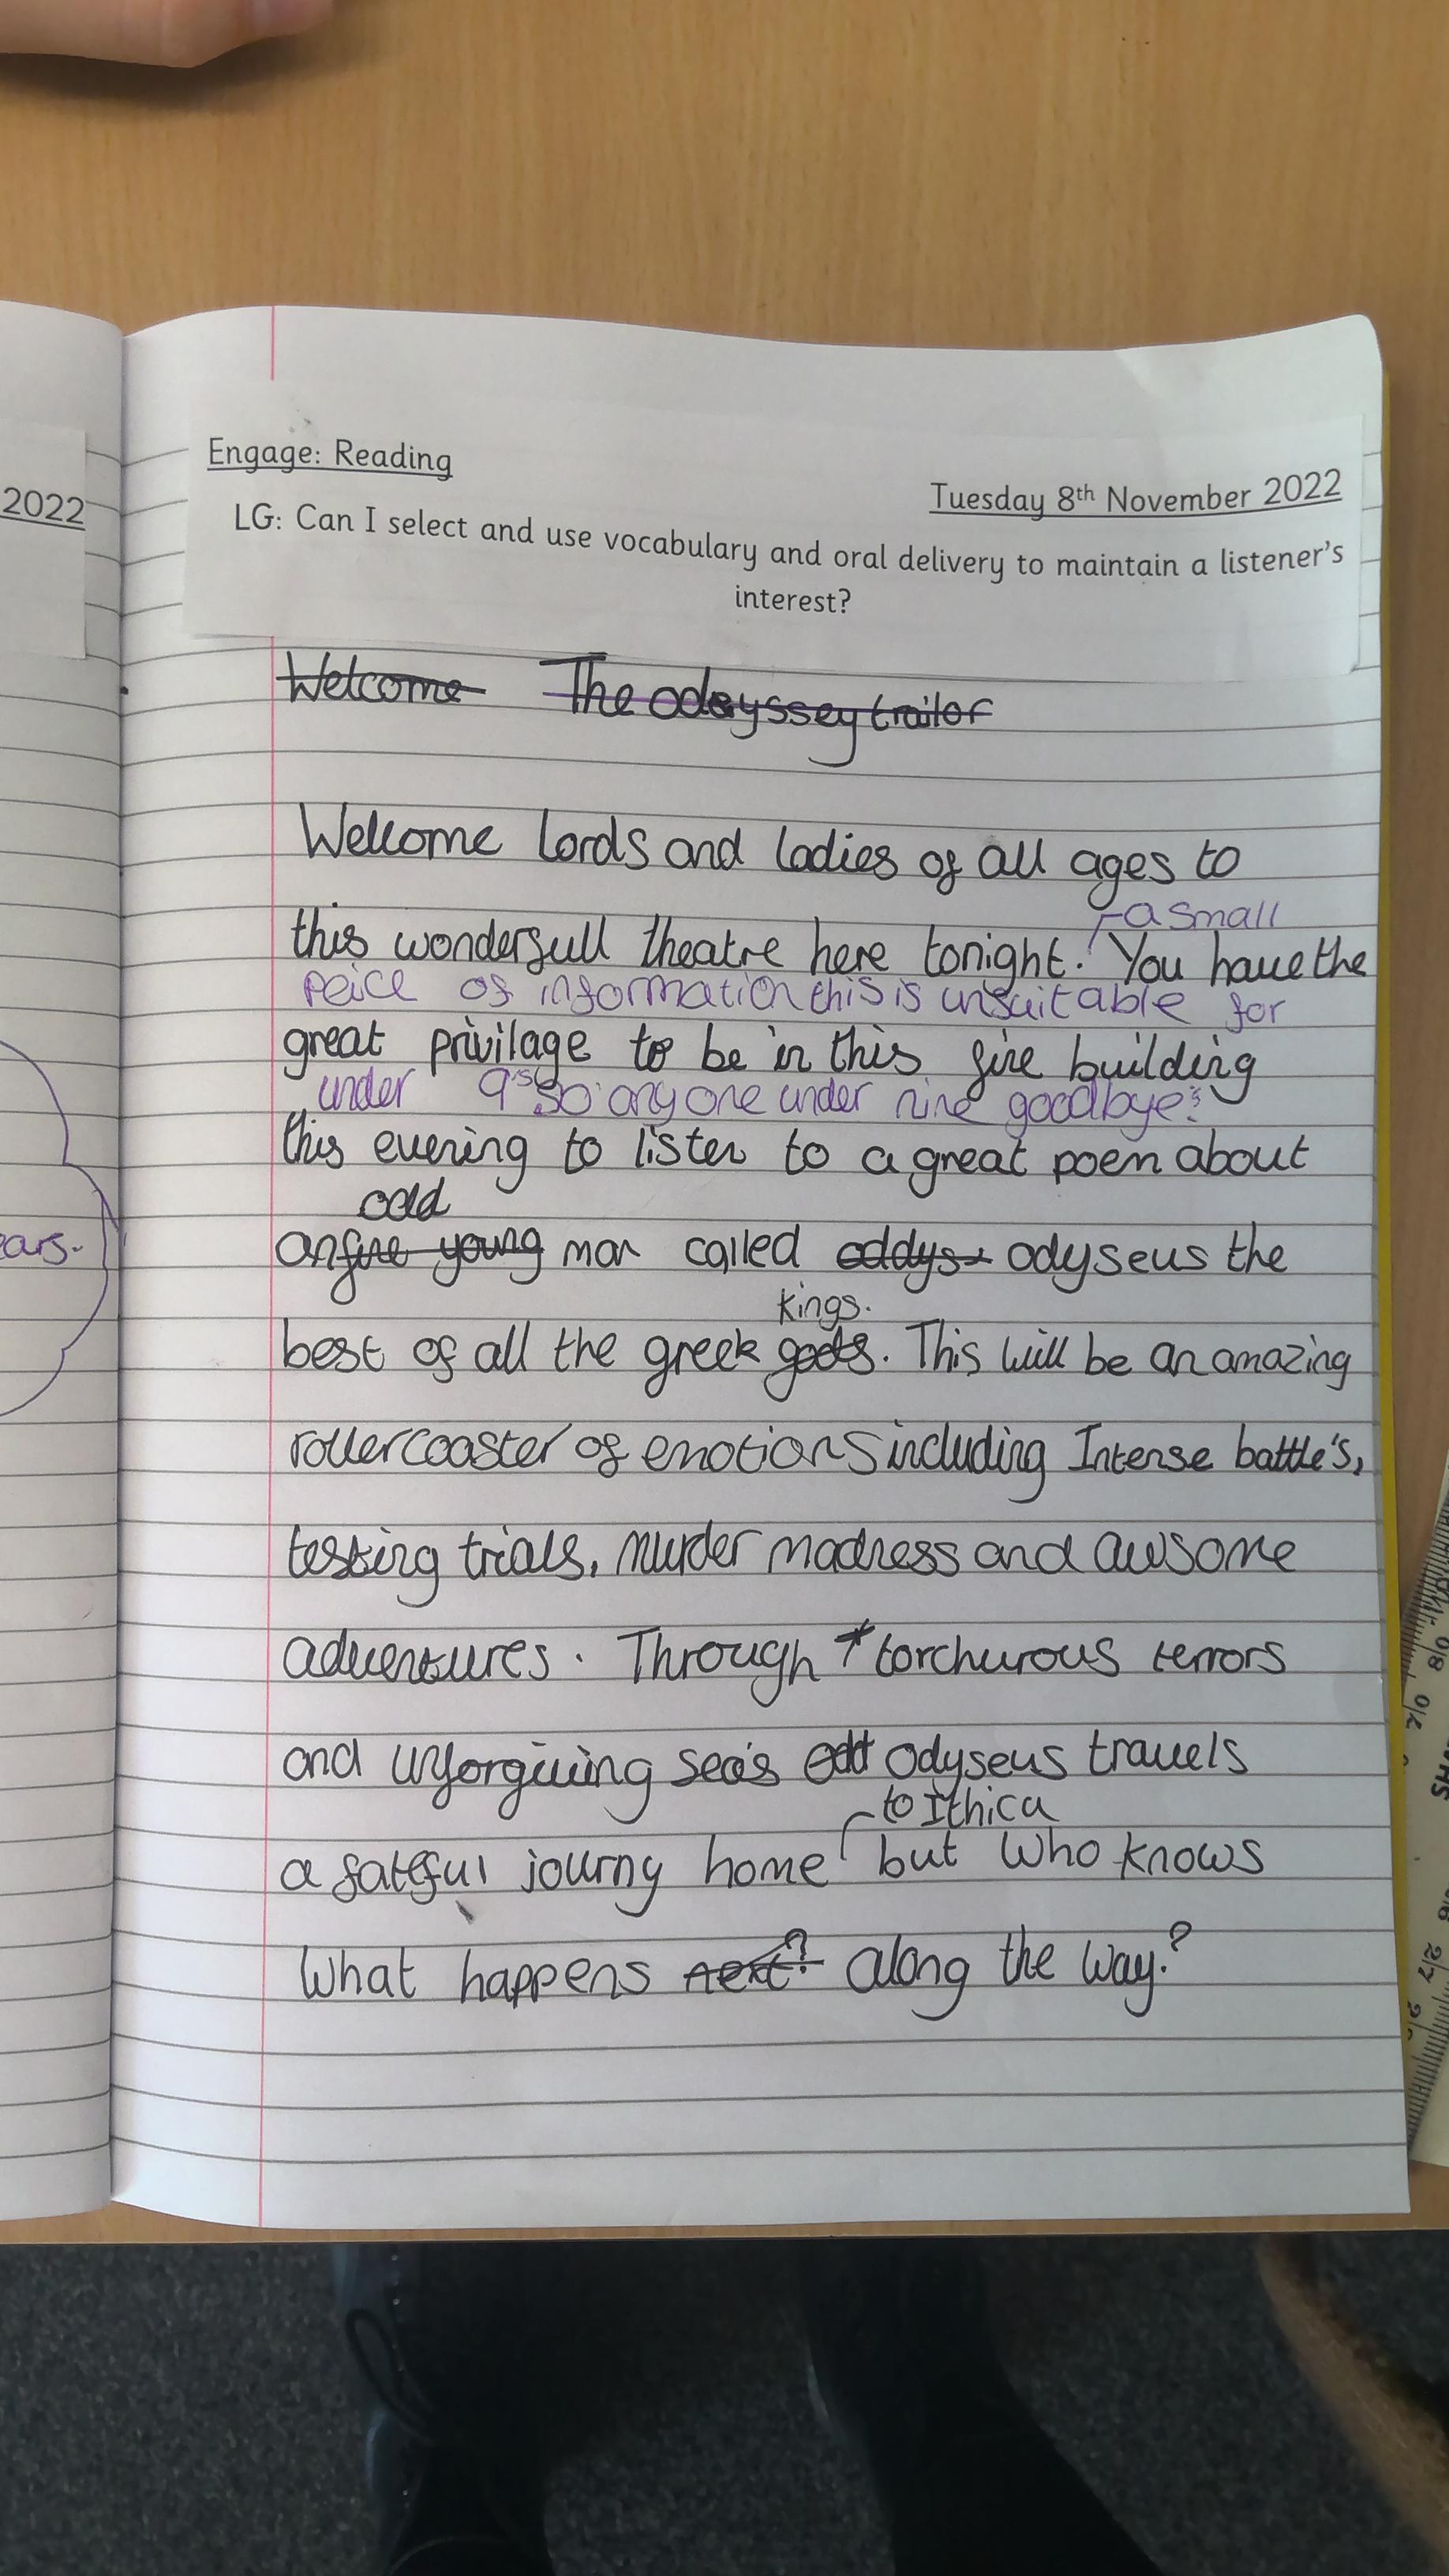 2022
ars.
Engage: Reading
Tuesday 8th November 2022
LG: Can I select and use vocabulary and oral delivery to maintain a listener's
interest?
Welcome The odeyssey trailor
Wellcome Lords and ladies of all ages to
a small
this wonderfull theatre here tonight. You have the
peice of information this is unsuitable for
great privilage to be in this fine building
under 9's so anyone under nine goodbye
this evening to listen to a great poem about
odd
an fine young man called oddys odyseus the
kings.
best of all the greek gods. This will be an amazing
rollercoaster of emotions including Intense battle's,
testing trials, murder madness and awsome
adventures. Through t torchurous terrors
and unforgiving sea's odt odyseus travels
to Ithica
a fateful journy home but who knows
What happens next? along the way?